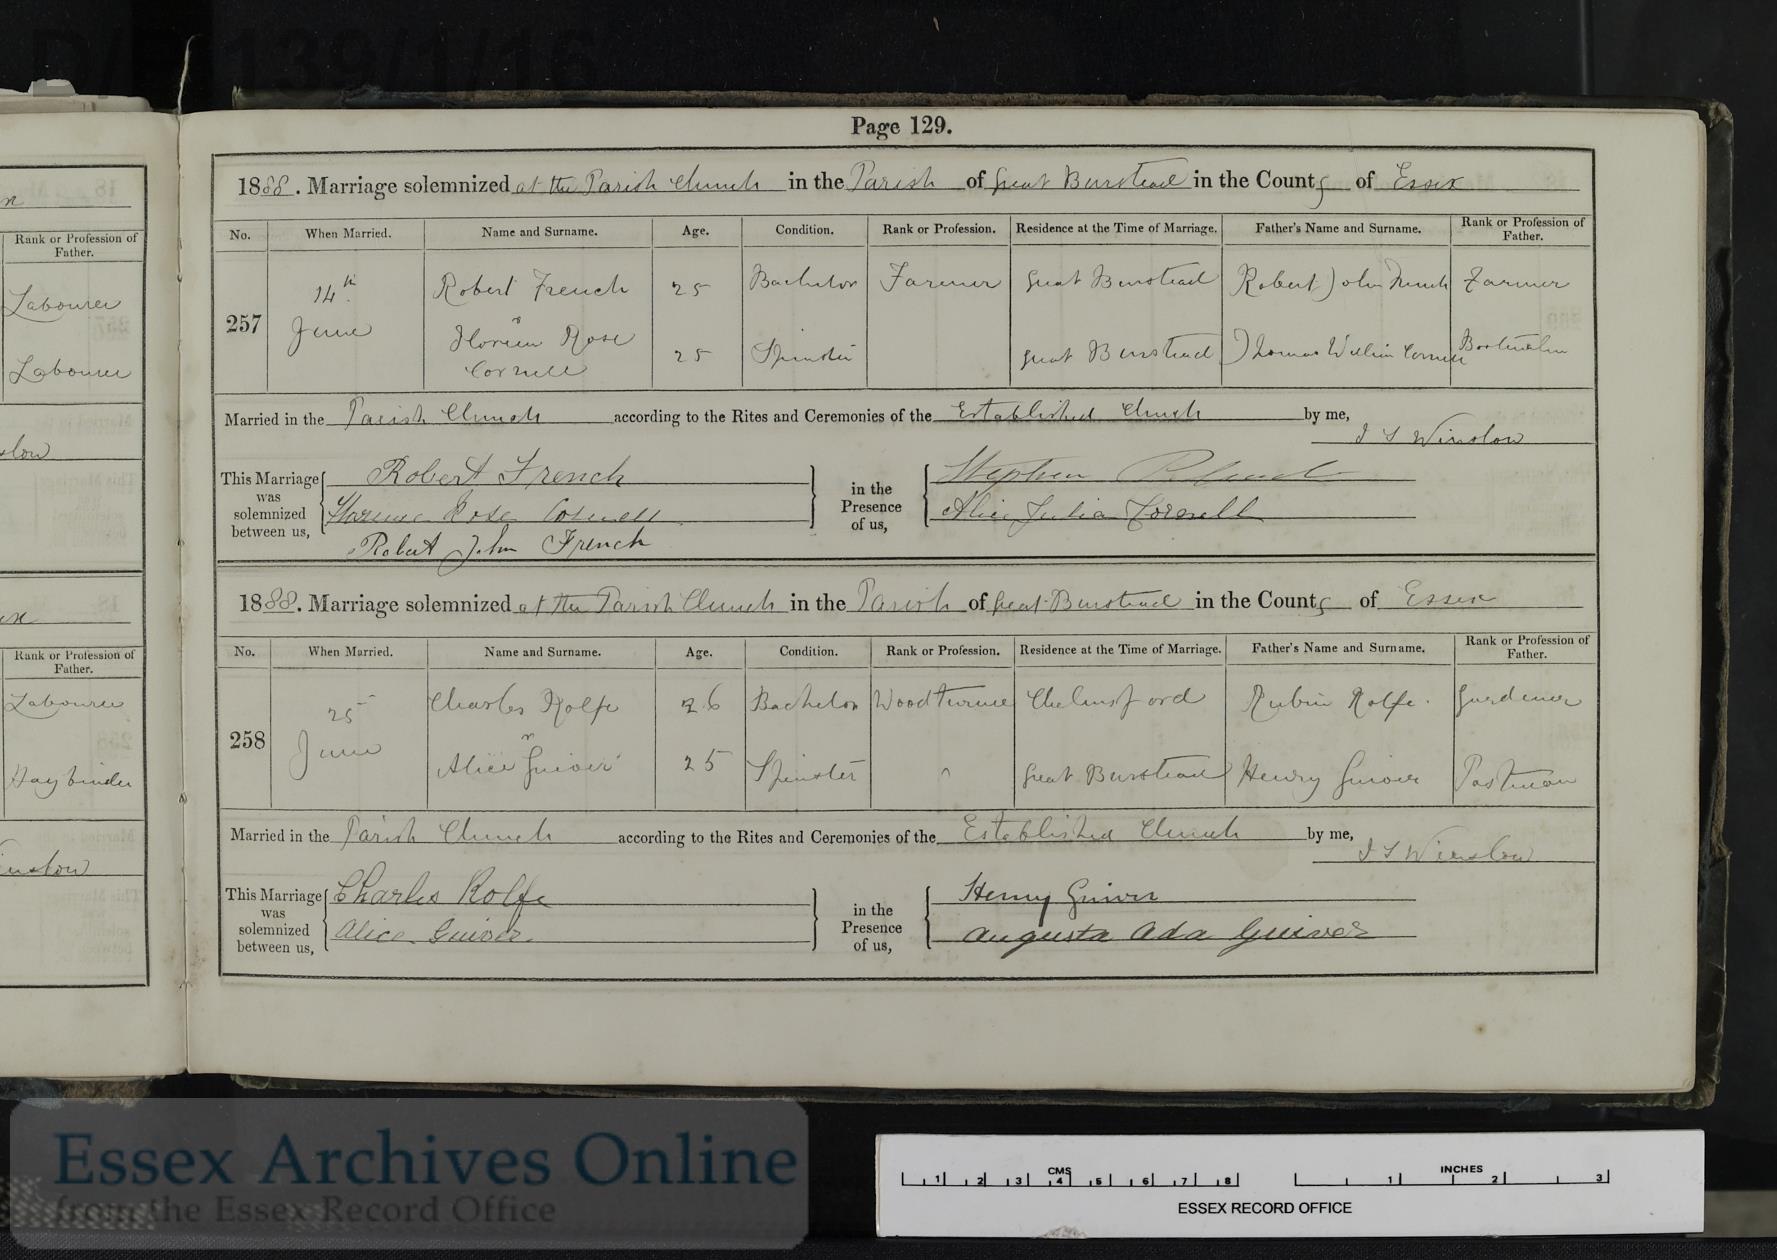 D/P 139/1/16
Page 129.
1888. Marriage solemnized at the Parish Church in the Parish of Great Burstead in the County of Essex
No. When Married. Name and Surname. Age. Condition. Rank or Profession. Residence at the Time of Marriage. Father's Name and Surname. Rank or Profession of Father.
257 14th June Robert French 25 Bachelor Farmer Great Burstead Robert John French Farmer
Rose Cornell 25 Spinster Great Burstead Thomas William Cornell
Married in the Parish Church according to the Rites and Ceremonies of the Established Church by me, J S Winslow
This Marriage was solemnized between us, Robert French in the Presence of us, Stephen
Florence Rose Cornell Alice Julia Cornell
Robert John French
1888. Marriage solemnized at the Parish Church in the Parish of Great Burstead in the County of Essex
No. When Married. Name and Surname. Age. Condition. Rank or Profession. Residence at the Time of Marriage. Father's Name and Surname. Rank or Profession of Father.
258 25 June Charles Rolfe 26 Bachelor Wood turner Chelmsford Rubin Rolfe Gardener
Alice Guiver 25 Spinster Great Burstead Henry Guiver Postman
Married in the Parish Church according to the Rites and Ceremonies of the Established Church by me, J S Winslow
This Marriage was solemnized between us, Charles Rolfe in the Presence of us, Henry Guiver
Alice Guiver Augusta Ada Guiver
Rank or Profession of Father.
Labourer
Labourer
Rank or Profession of Father.
Labourer
Hay binder
Essex Archives Online
from the Essex Record Office
CMS 1 2 3 4 5 6 7 8
INCHES 1 2 3
ESSEX RECORD OFFICE